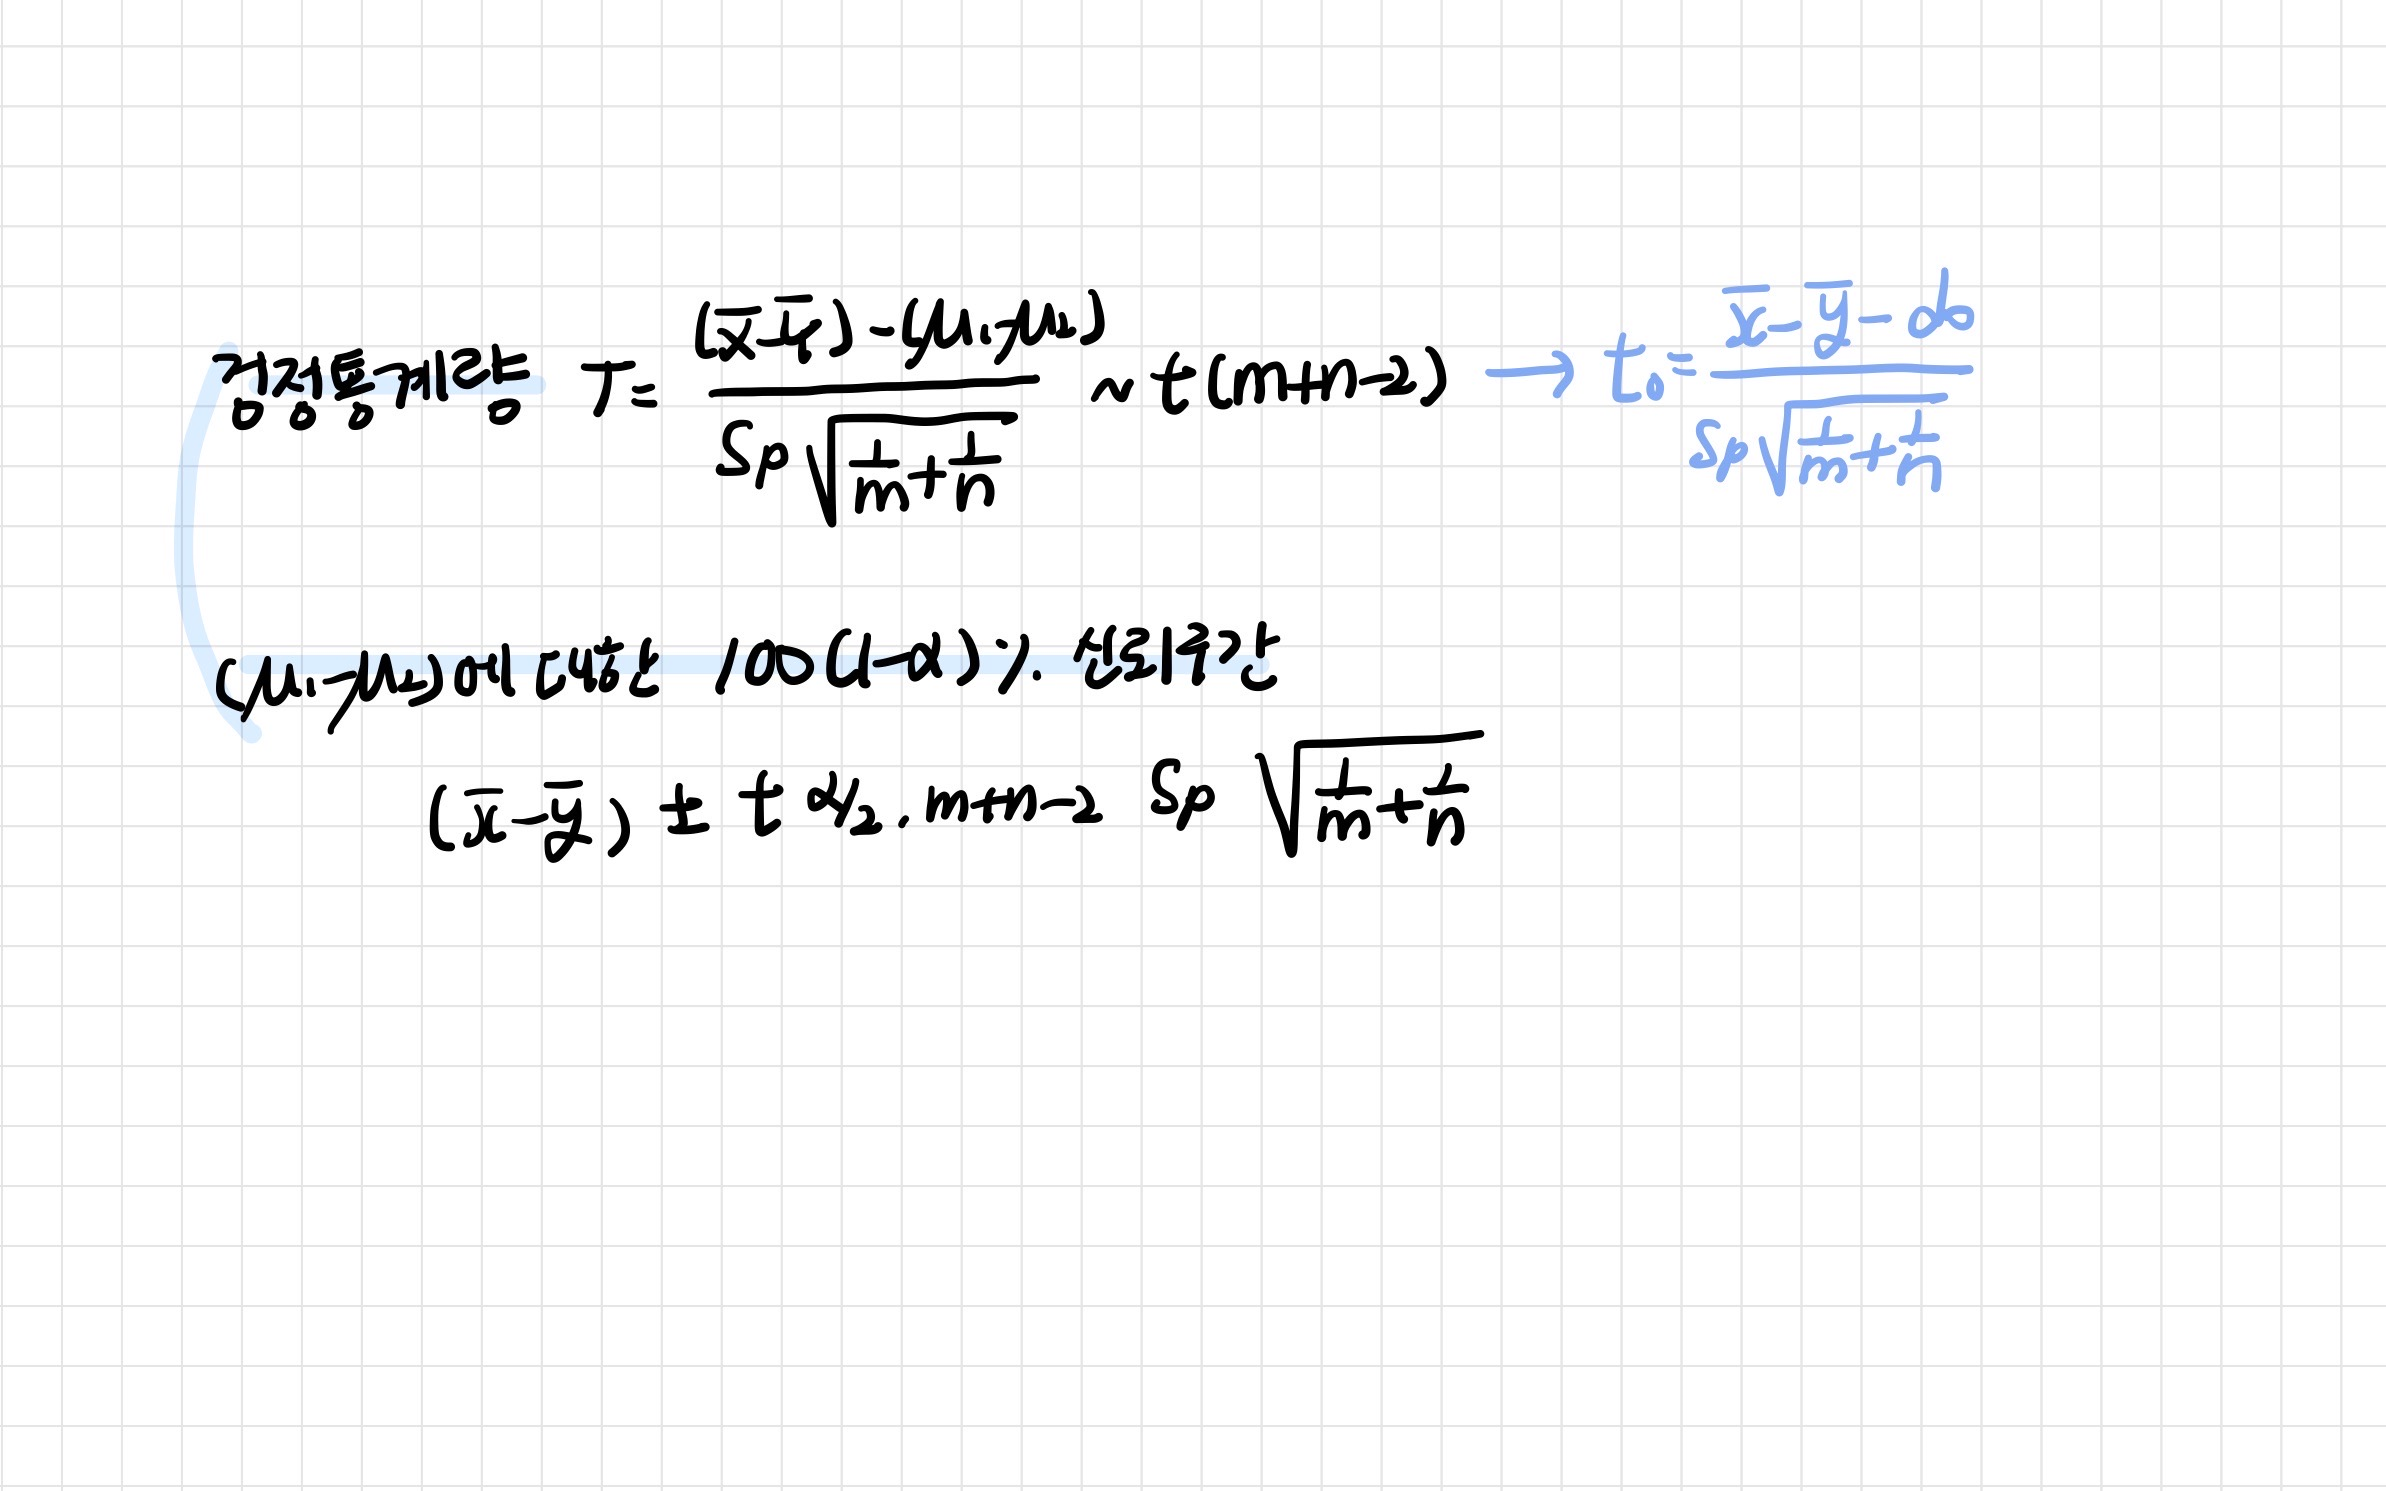 검정통계량 T = ((x̄-ȳ) - (μ₁-μ₂)) / (Sp√(1/m + 1/n)) ~ t(m+n-2) → t₀ = (x̄-ȳ-δ₀) / (Sp√(1/m + 1/n))
(μ₁-μ₂)에 대한 100(1-α)% 신뢰구간
(x̄-ȳ) ± t α/2, m+n-2 Sp √(1/m + 1/n)